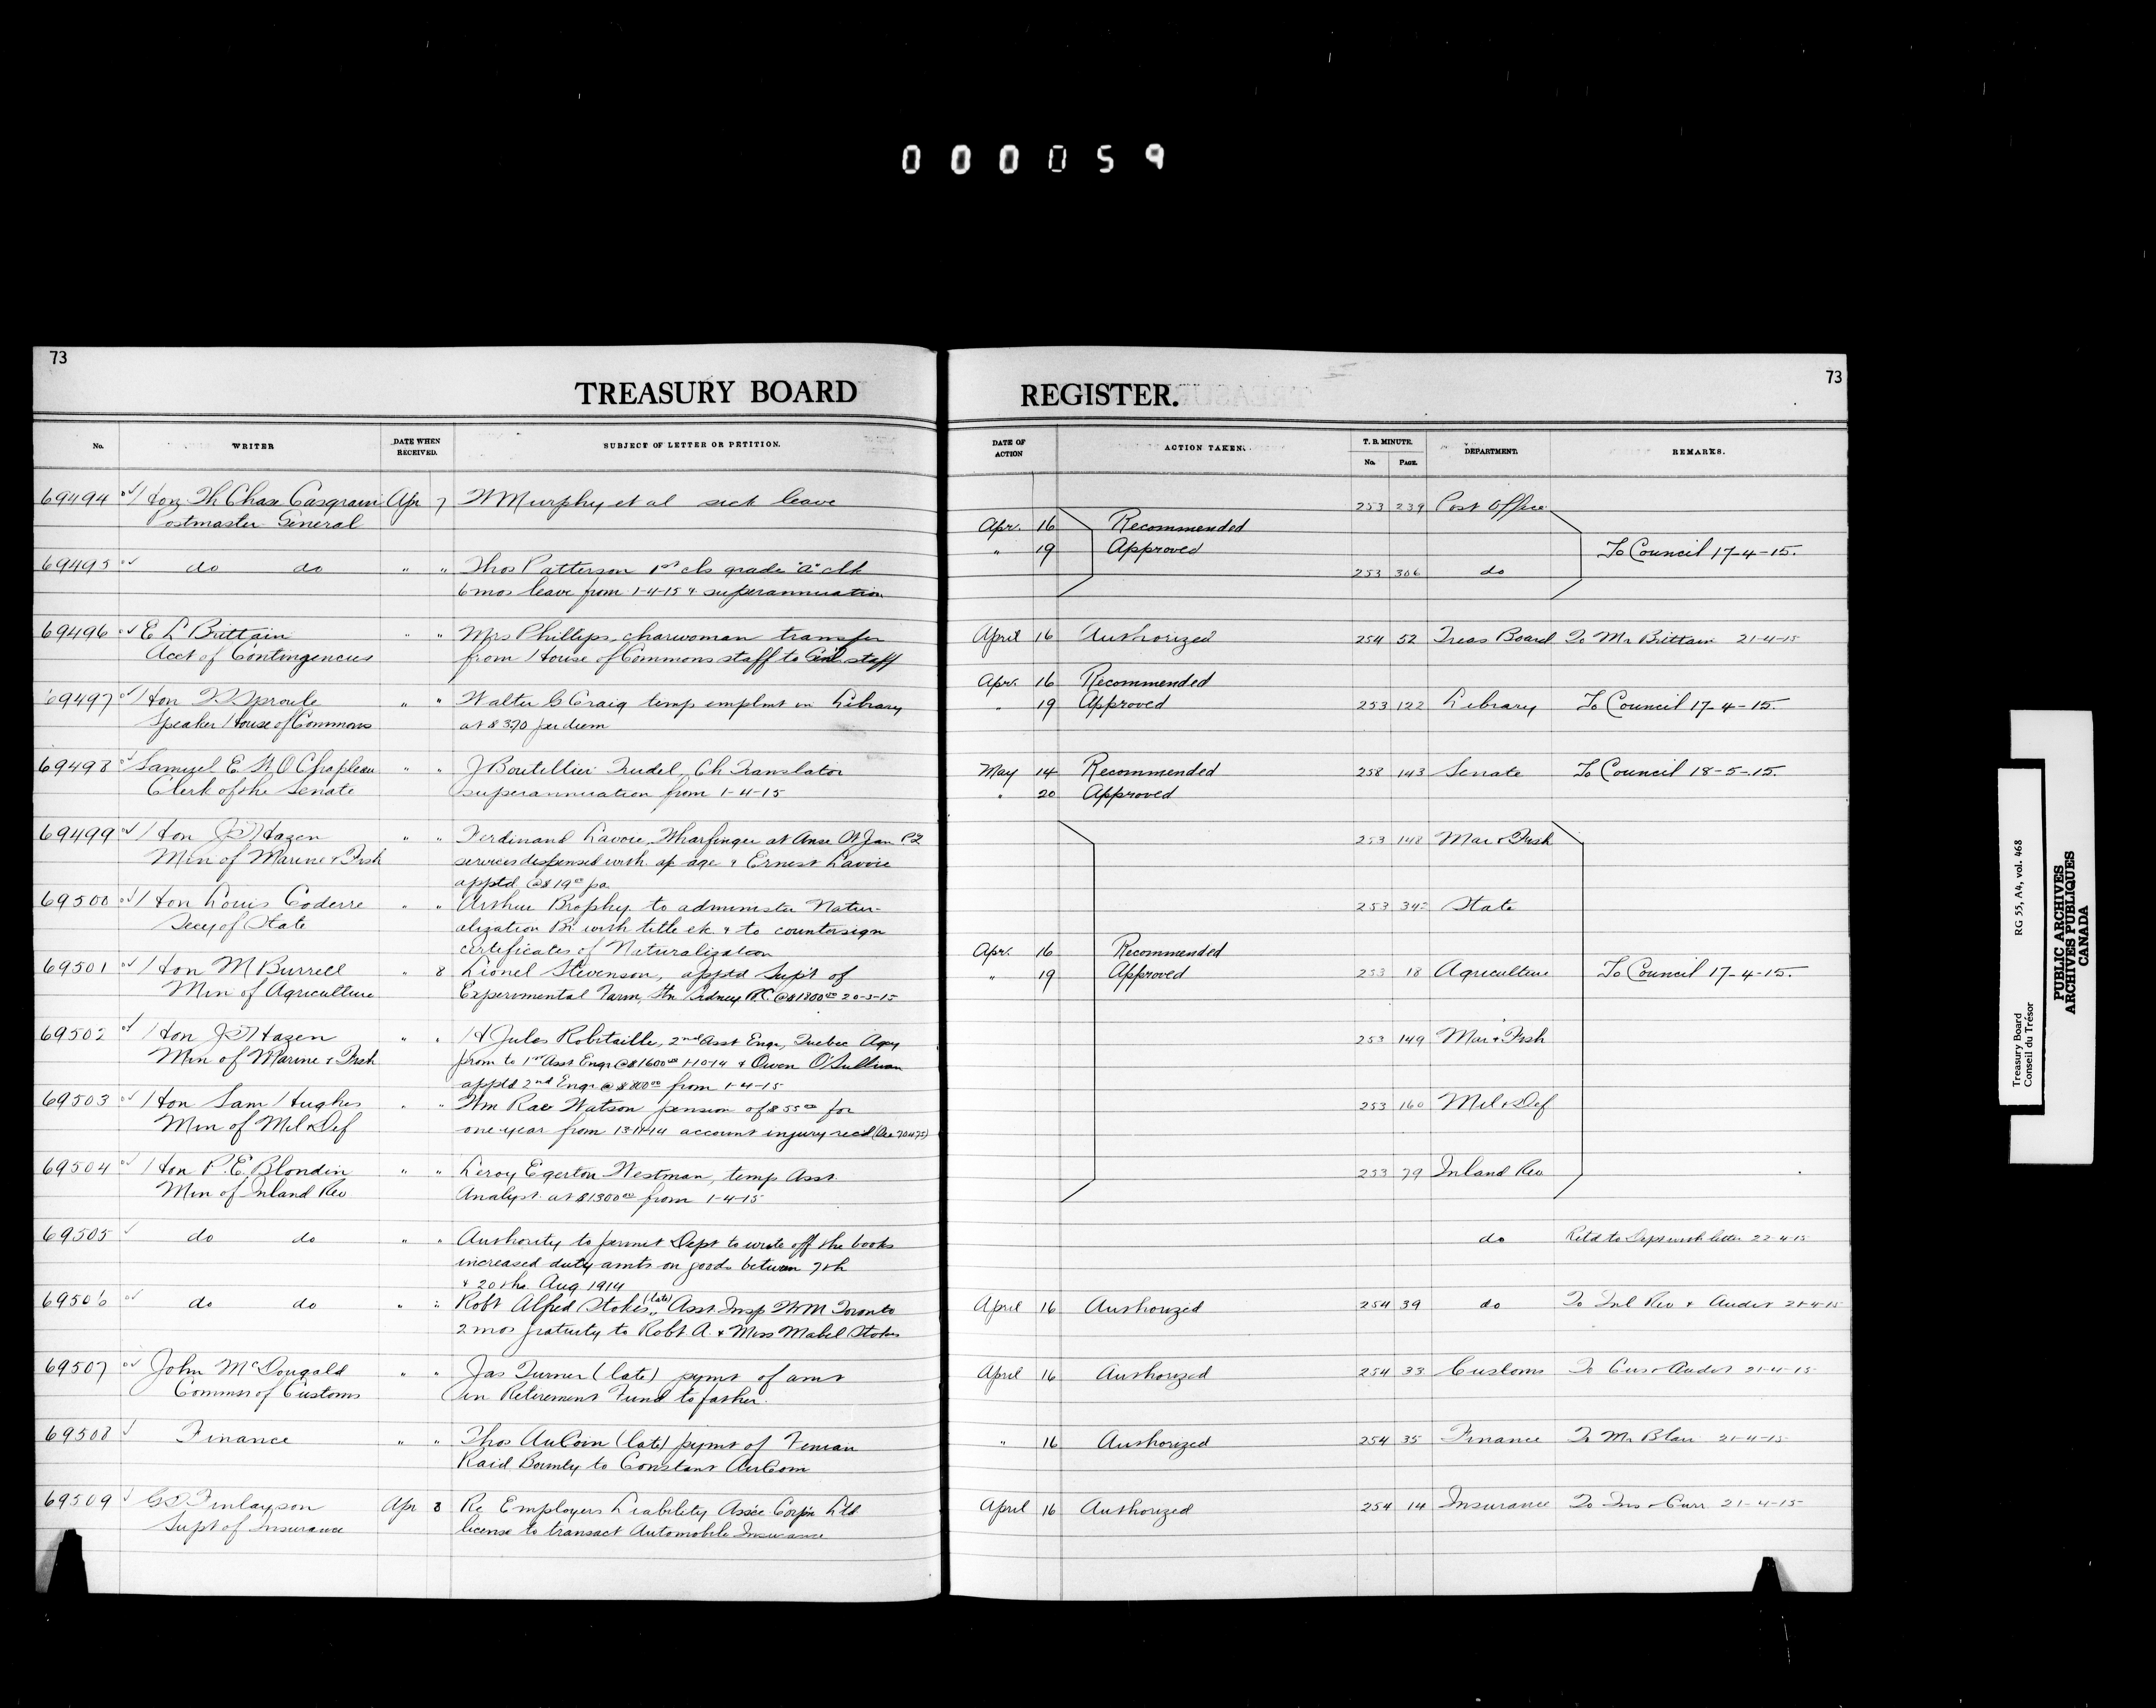 000059
73
73
TREASURY BOARD REGISTER.
No. WRITER DATE WHEN RECEIVED. SUBJECT OF LETTER OR PETITION. DATE OF ACTION ACTION TAKEN. T. B. MINUTE. No. PAGE. DEPARTMENT. REMARKS.
69494 Hon Th Chase Casgrain Apr 7 W Murphy et al sick leave 253 239 Post Office
Postmaster General Apr. 16 Recommended
" 19 Approved To Council 17-4-15.
69495 do do " " Thos Patterson 1st cls grade "a" clk 253 306 do
6 mos leave from 1-4-15 & superannuation
69496 E L Brittain " " Mrs Phillips, charwoman transfer April 16 Authorized 254 52 Treas Board To Mr Brittain 21-4-15
Acct of Contingencies from House of Commons staff to staff
Apr. 16 Recommended
69497 Hon Sproule " " Walter G Craig temp emplmt in Library " 19 Approved 253 122 Library To Council 17-4-15.
Speaker House of Commons at $3.70 per diem
69498 Samuel E St O Chapleau " " J Boutellier Trudel, Ch Translator May 14 Recommended 258 143 Senate To Council 18-5-15.
Clerk of the Senate superannuation from 1-4-15 " 20 Approved
69499 Hon J D Hazen " " Ferdinand Lavoie, Wharfinger at Anse St Jean PQ 253 148 Mar & Fish
Min of Marine & Fish services dispensed with ap age & Ernest Lavoie
apptd @ $19.00 pa
69500 Hon Louis Coderre " " Arthur Brophy to administer Natur- 253 State
Secy of State alization Br with title etc. & to countersign
certificates of Naturalization Apr. 16 Recommended
69501 Hon M Burrell " 8 Lionel Stevenson, apptd Supt of " 19 Approved 253 18 Agriculture To Council 17-4-15.
Min of Agriculture Experimental Farm, Stn Sidney B.C. @ $1800.00 20-3-15
69502 Hon J D Hazen " " H Jules Robitaille, 2nd Asst Engr, Quebec Agcy 253 149 Mar & Fish
Min of Marine & Fish prom to 1st Asst Engr @ $1600.00 1-10-14 & Owen O'Sullivan
apptd 2nd Engr @ from 1-4-15
69503 Hon Sam Hughes " " Wm Rae Watson pension of $55.00 for 253 160 Mil & Def
Min of Mil & Def one year from 13-11-14 account injury recd
69504 Hon P. E. Blondin " " Leroy Egerton Westman, temp Asst 253 79 Inland Rev
Min of Inland Rev Analyst at $1300.00 from 1-4-15
69505 do do " " Authority to permit Dept to write off the books do Retd to Dept with letter 22-4-15
increased duty amts on goods between 7th
& 20th Aug 1914
69506 do do " " Robt Alfred Stokes (late) Asst Insp W M Toronto April 16 Authorized 254 39 do To Inl Rev & Audit 21-4-15
2 mos gratuity to Robt. A. & Miss Mabel Stokes
69507 John McDougald " " Jas Turner (late) pymt of amt April 16 Authorized 254 33 Customs To Cus & Audit 21-4-15
Commr of Customs in Retirement Fund to father.
69508 Finance " " Thos AuCoin (late) pymt of Fenian " 16 Authorized 254 35 Finance To Mr Blair 21-4-15
Raid Bounty to Constant AuCoin
69509 G D Finlayson Apr 8 Re Employers Liability Assce Corp'n Ltd April 16 Authorized 254 14 Insurance To Ins 21-4-15
Supt of Insurance license to transact Automobile Insurance
Treasury Board RG 55, A4, vol. 468
Conseil du Trésor
PUBLIC ARCHIVES
ARCHIVES PUBLIQUES
CANADA